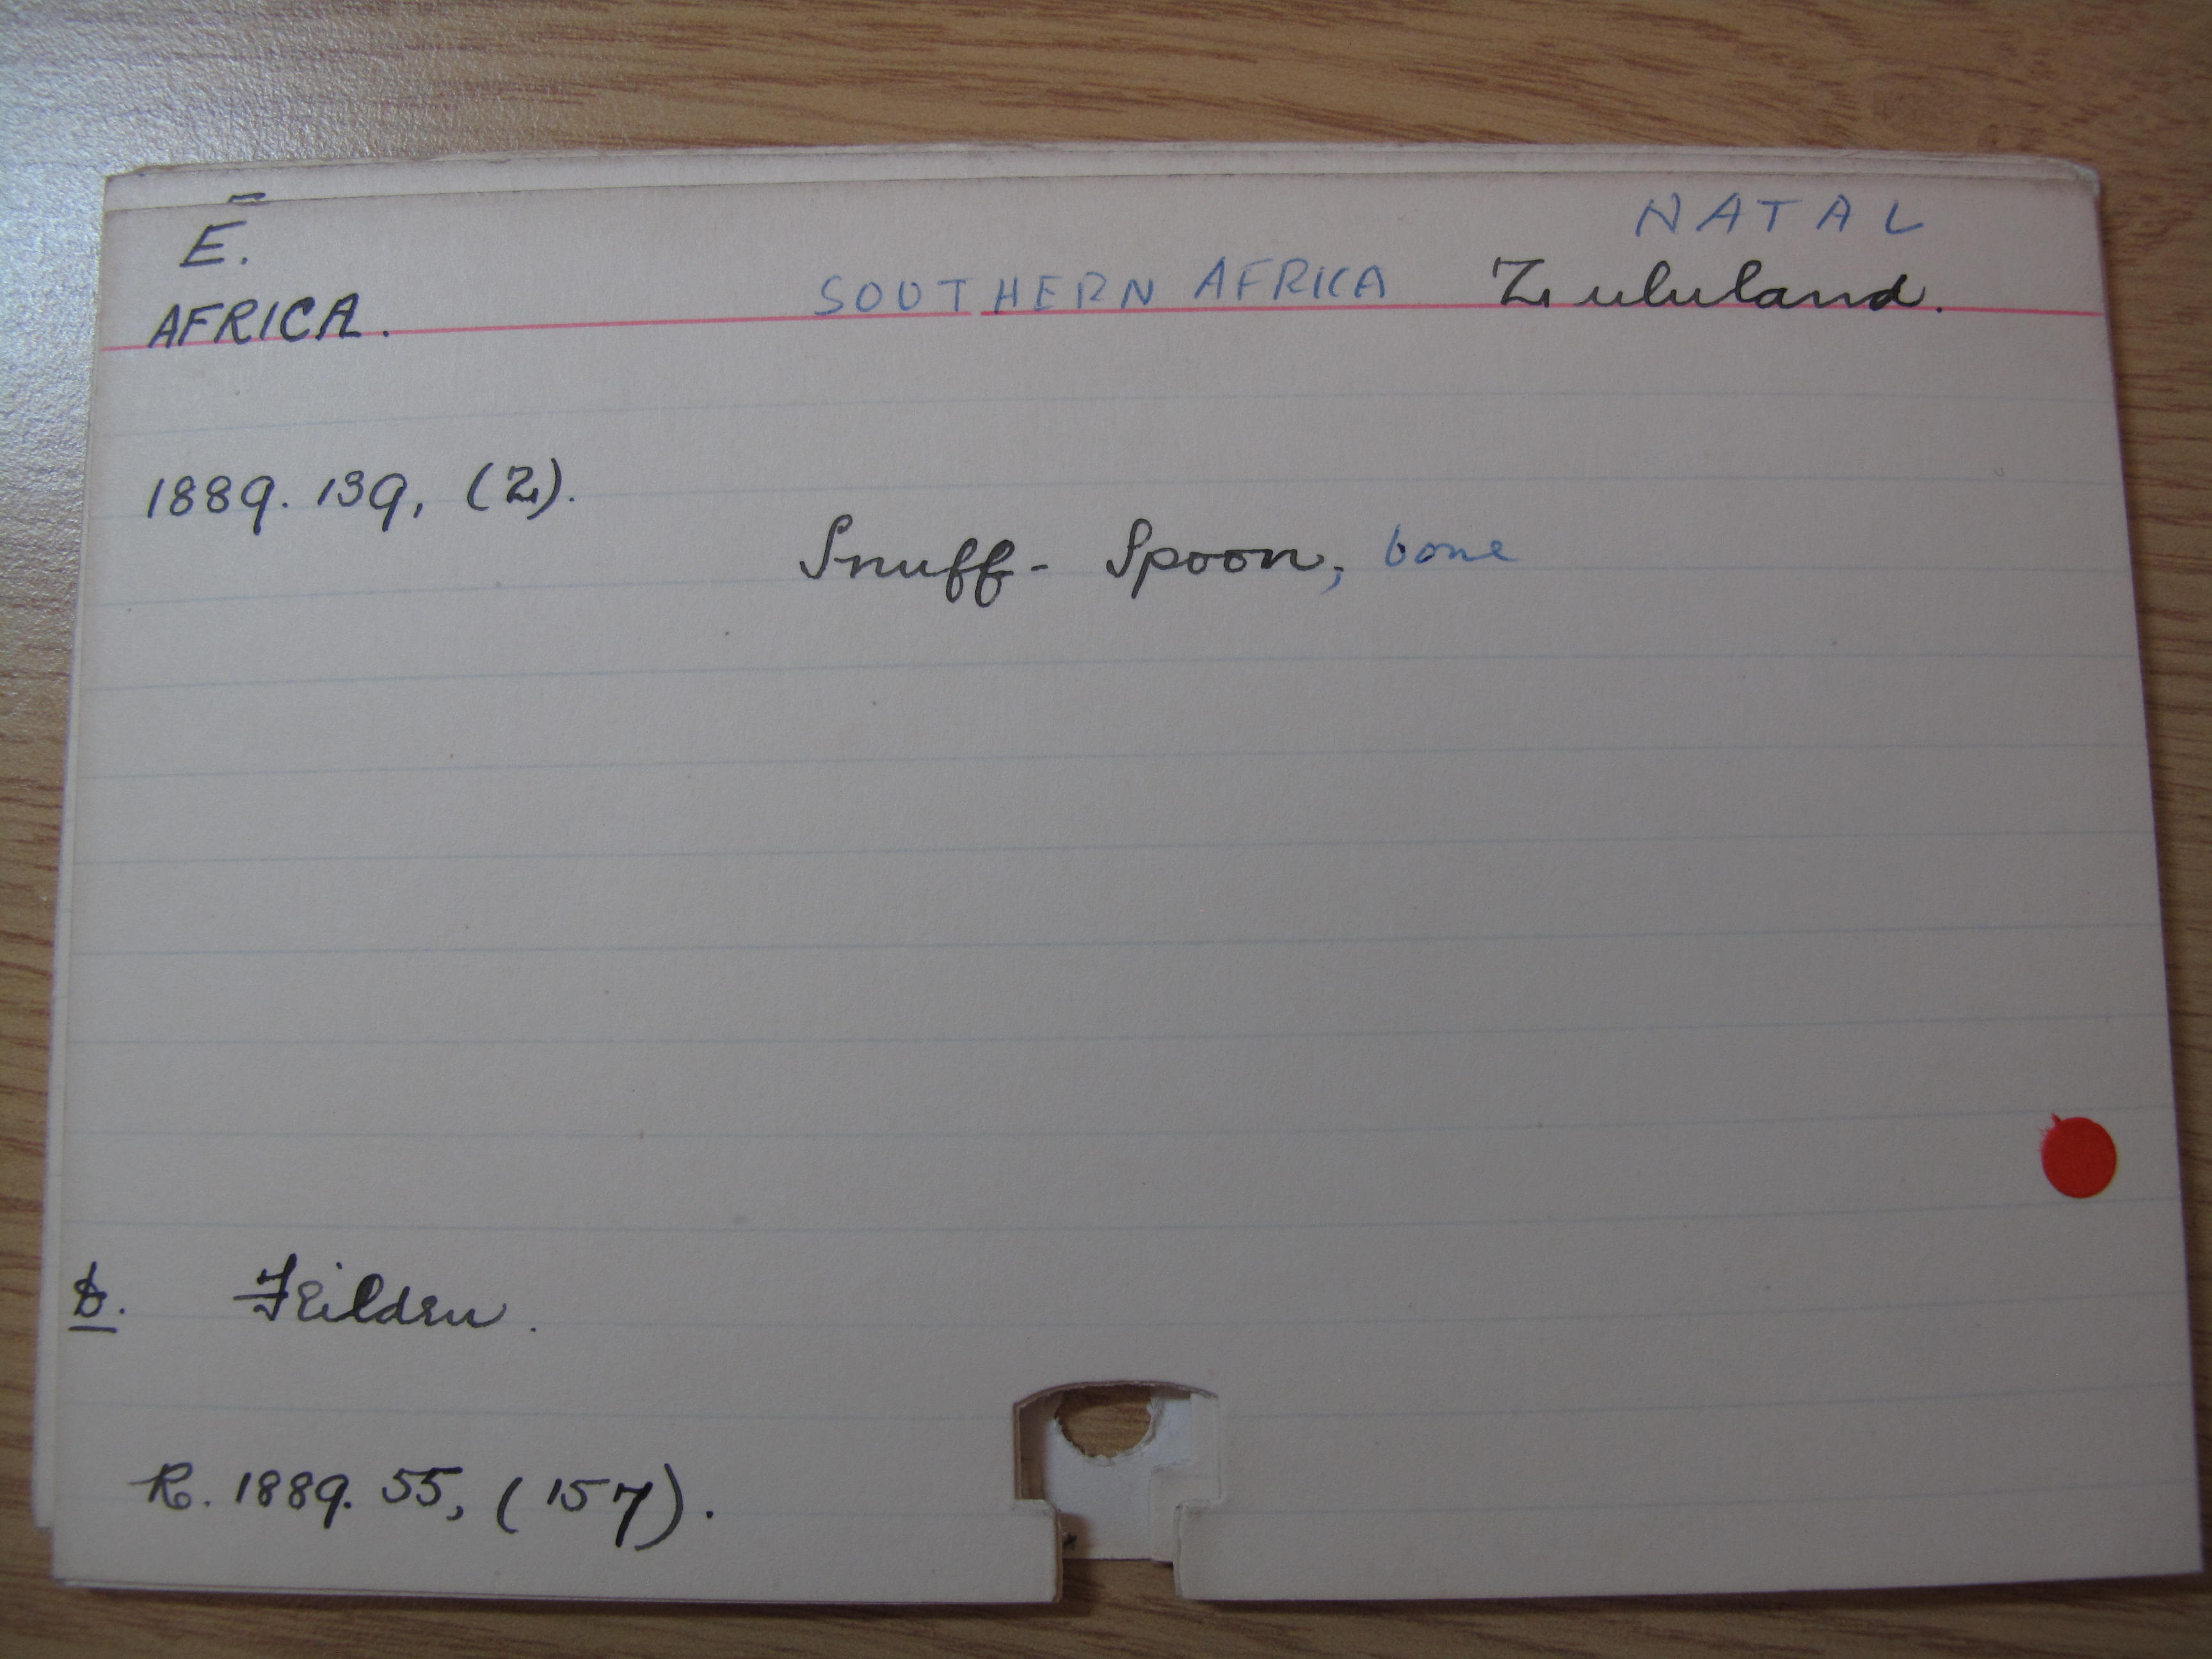 NATAL
E.
AFRICA. SOUTHERN AFRICA Zululand.
1889. 139, (2).
Snuff-Spoon, bone
b. Feilden.
R. 1889. 55, (157).